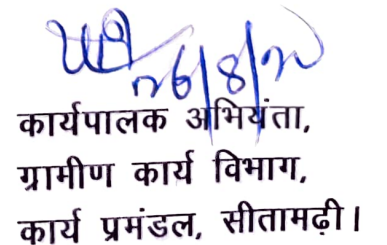 26/8/20
कार्यपालक अभियंता,
ग्रामीण कार्य विभाग,
कार्य प्रमंडल, सीतामढ़ी।